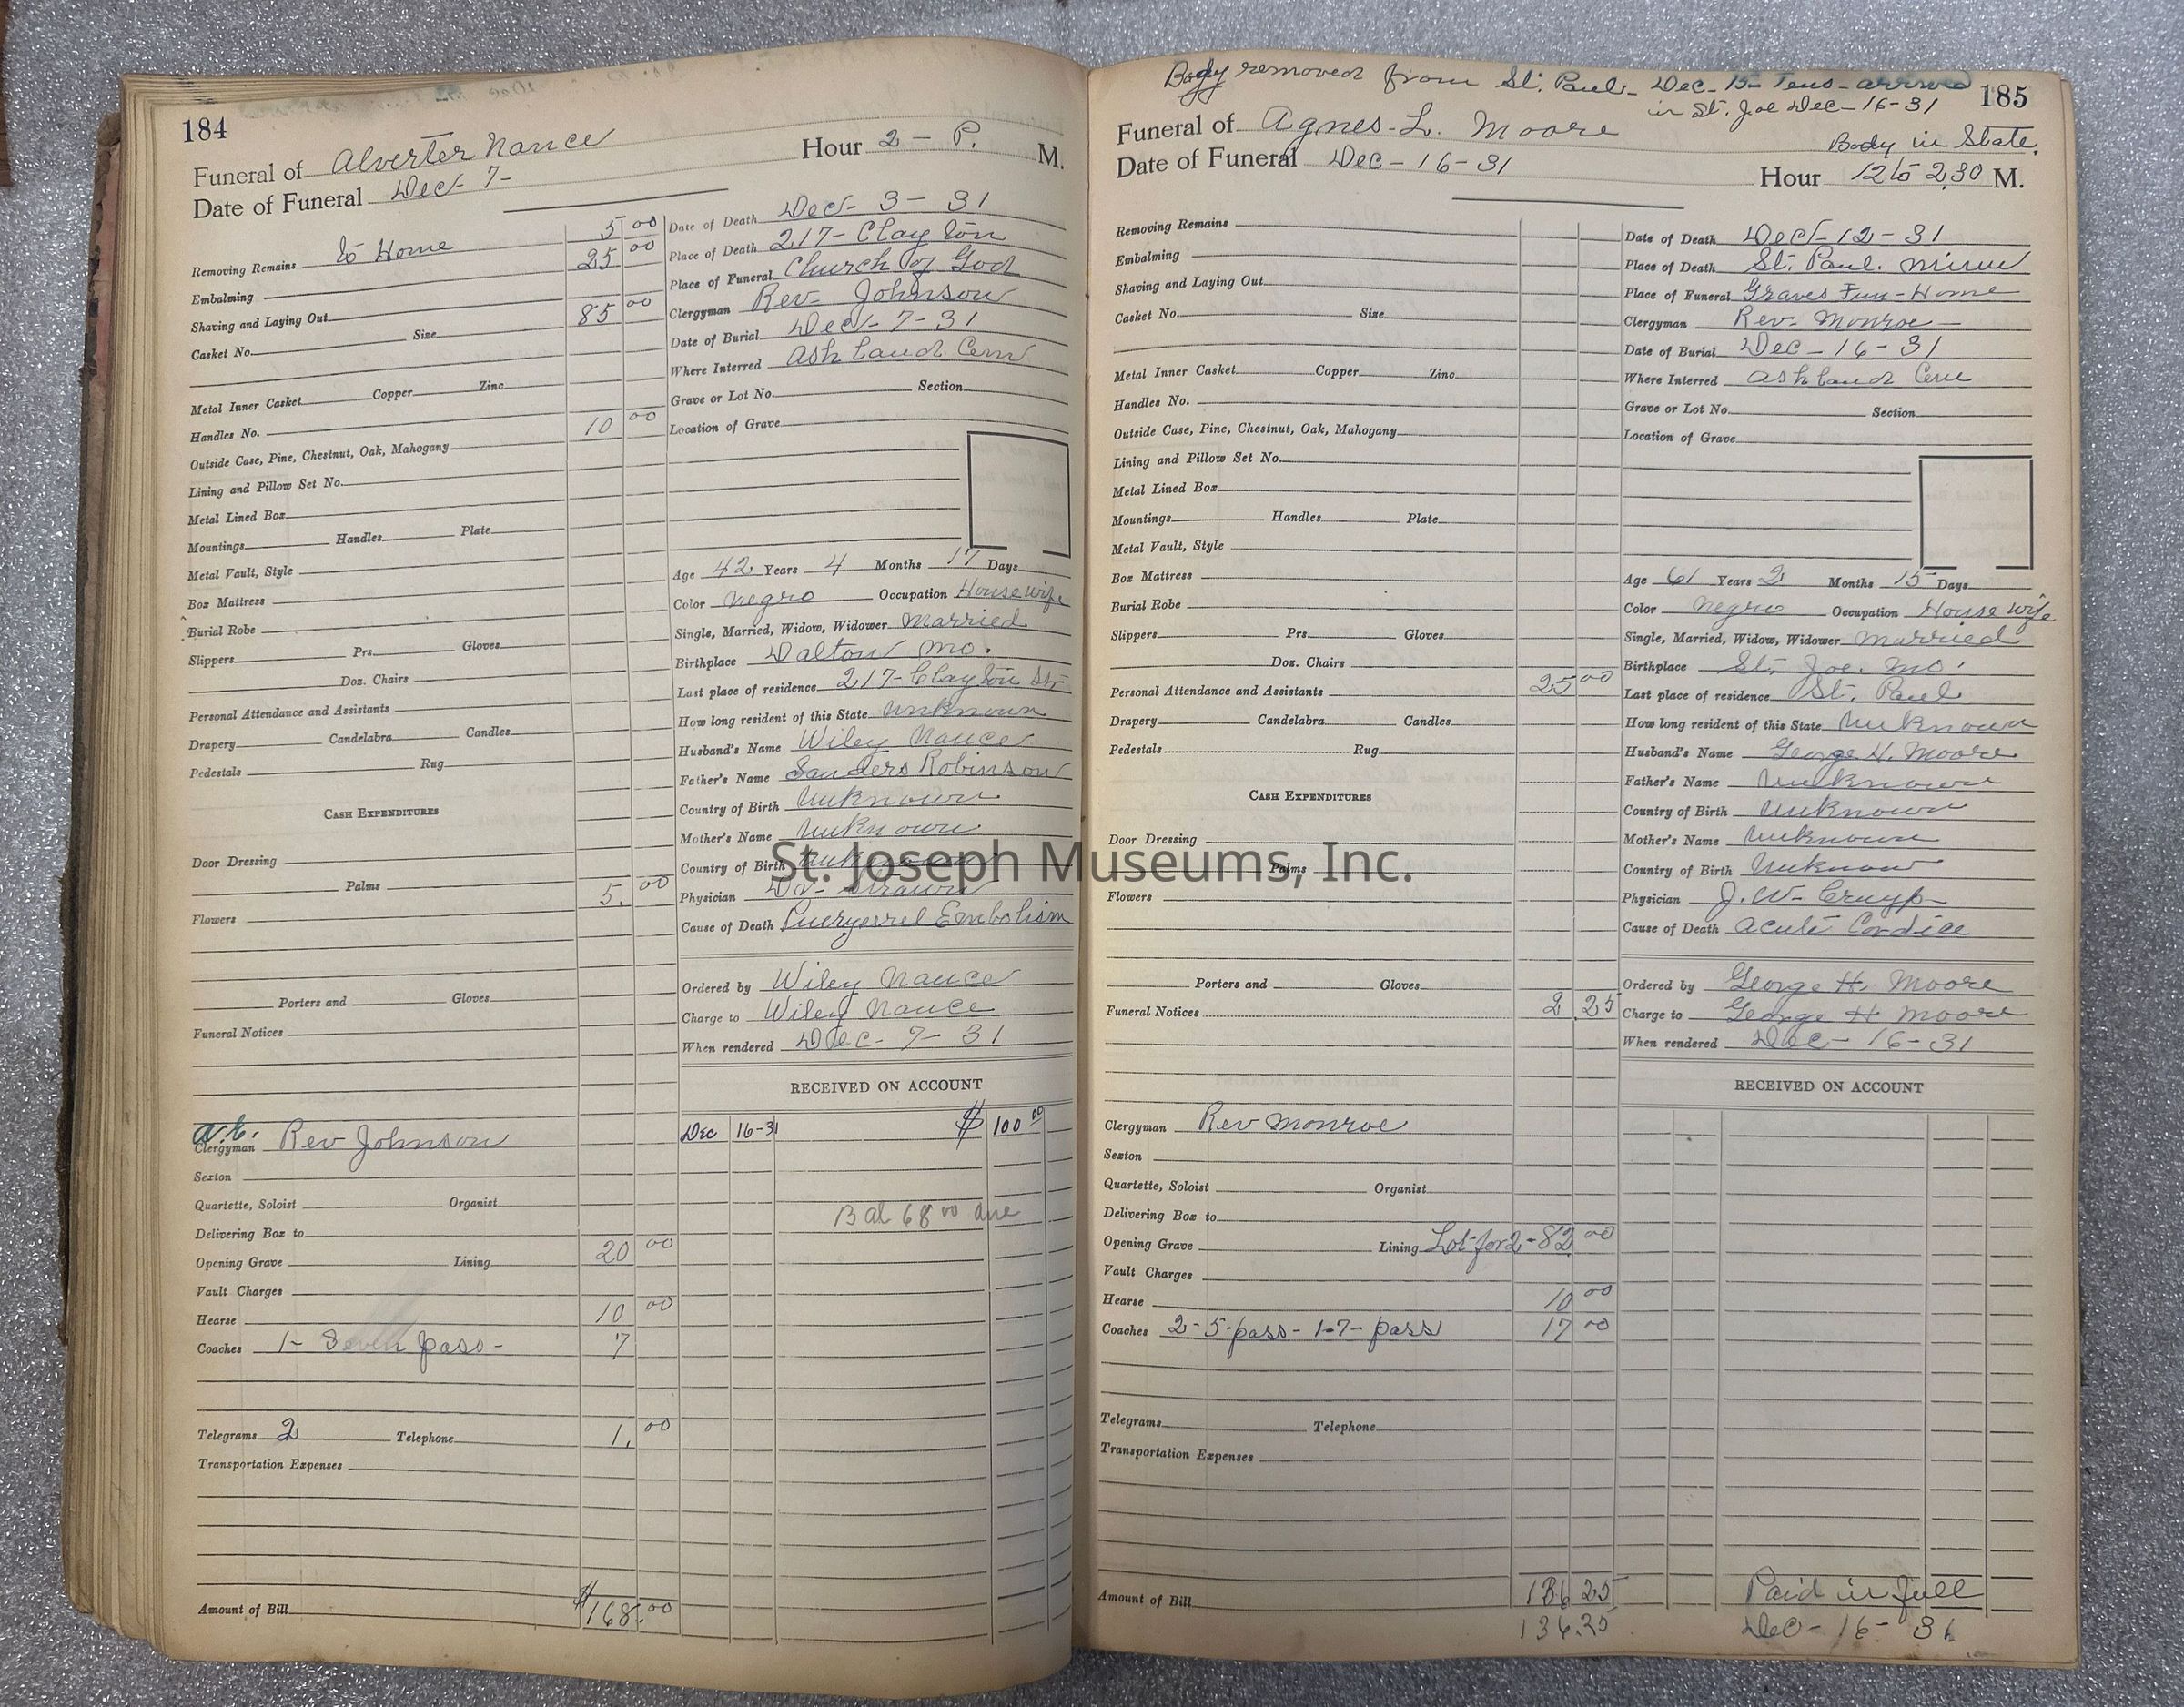 184
Funeral of Alverter Nance
Hour 2 - P. M.
Date of Funeral Dec- 7-
Removing Remains to Home 5 00
Embalming 25 00
Shaving and Laying Out
Casket No. Size 85 00
Metal Inner Casket Copper Zinc
Handles No.
Outside Case, Pine, Chestnut, Oak, Mahogany 10 00
Lining and Pillow Set No.
Metal Lined Box
Mountings Handles Plate
Metal Vault, Style
Box Mattress
Burial Robe
Slippers Prs. Gloves
Doz. Chairs
Personal Attendance and Assistants
Drapery Candelabra Candles
Pedestals Rug
CASH EXPENDITURES
Door Dressing
Palms
Flowers 5. 00
Porters and Gloves
Funeral Notices
Clergyman Rev Johnson
Sexton
Quartette, Soloist Organist
Delivering Box to
Opening Grave Lining 20 00
Vault Charges
Hearse 10 00
Coaches 1- Seven pass- 7
Telegrams 2 Telephone 1. 00
Transportation Expenses
Amount of Bill $168.00
Date of Death Dec- 3- 31
Place of Death 217- Clayton
Place of Funeral Church of God
Clergyman Rev- Johnson
Date of Burial Dec- 7- 31
Where Interred Ashland Cem
Grave or Lot No. Section
Location of Grave
Age 42 Years 4 Months 17 Days
Color negro Occupation House wife
Single, Married, Widow, Widower married
Birthplace Dalton Mo.
Last place of residence 217- Clayton Str
How long resident of this State unknown
Husband's Name Wiley Nance
Father's Name Sanders Robinson
Country of Birth Unknown
Mother's Name Unknown
Country of Birth Unknown
Physician Dr-
Cause of Death Embolism
Ordered by Wiley Nance
Charge to Wiley Nance
When rendered Dec- 7- 31
RECEIVED ON ACCOUNT
Dec 16-31 $ 100 00
Bal 68 00 due
Body removed from St. Paul- Dec- 15- arrived
in St. Joe Dec- 16-31
185
Funeral of Agnes- L. Moore
Body in State.
Date of Funeral Dec- 16-31
Hour 12 to 2.30 M.
Removing Remains
Embalming
Shaving and Laying Out
Casket No. Size
Metal Inner Casket Copper Zinc
Handles No.
Outside Case, Pine, Chestnut, Oak, Mahogany
Lining and Pillow Set No.
Metal Lined Box
Mountings Handles Plate
Metal Vault, Style
Box Mattress
Burial Robe
Slippers Prs. Gloves
Doz. Chairs
Personal Attendance and Assistants 25 00
Drapery Candelabra Candles
Pedestals Rug
CASH EXPENDITURES
Door Dressing
Palms
Flowers
Porters and Gloves
Funeral Notices 2.25
Clergyman Rev Monroe
Sexton
Quartette, Soloist Organist
Delivering Box to
Opening Grave Lining Lot for 2- 82 00
Vault Charges
Hearse 10 00
Coaches 2-5-pass- 1-7- pass 17 00
Telegrams Telephone
Transportation Expenses
Amount of Bill 136 25
136.25
Date of Death Dec- 12- 31
Place of Death St. Paul. Minn
Place of Funeral Graves Fun- Home
Clergyman Rev- Monroe-
Date of Burial Dec- 16- 31
Where Interred Ashland Cem
Grave or Lot No. Section
Location of Grave
Age 61 Years 2 Months 15 Days
Color negro Occupation House wife
Single, Married, Widow, Widower married
Birthplace St. Joe. Mo.
Last place of residence St. Paul
How long resident of this State Unknown
Husband's Name George H. Moore
Father's Name Unknown
Country of Birth Unknown
Mother's Name Unknown
Country of Birth Unknow
Physician J. W-
Cause of Death Acute
Ordered by George H. Moore
Charge to George H Moore
When rendered Dec- 16-31
RECEIVED ON ACCOUNT
Paid in full
Dec- 16- 31
St. Joseph Museums, Inc.